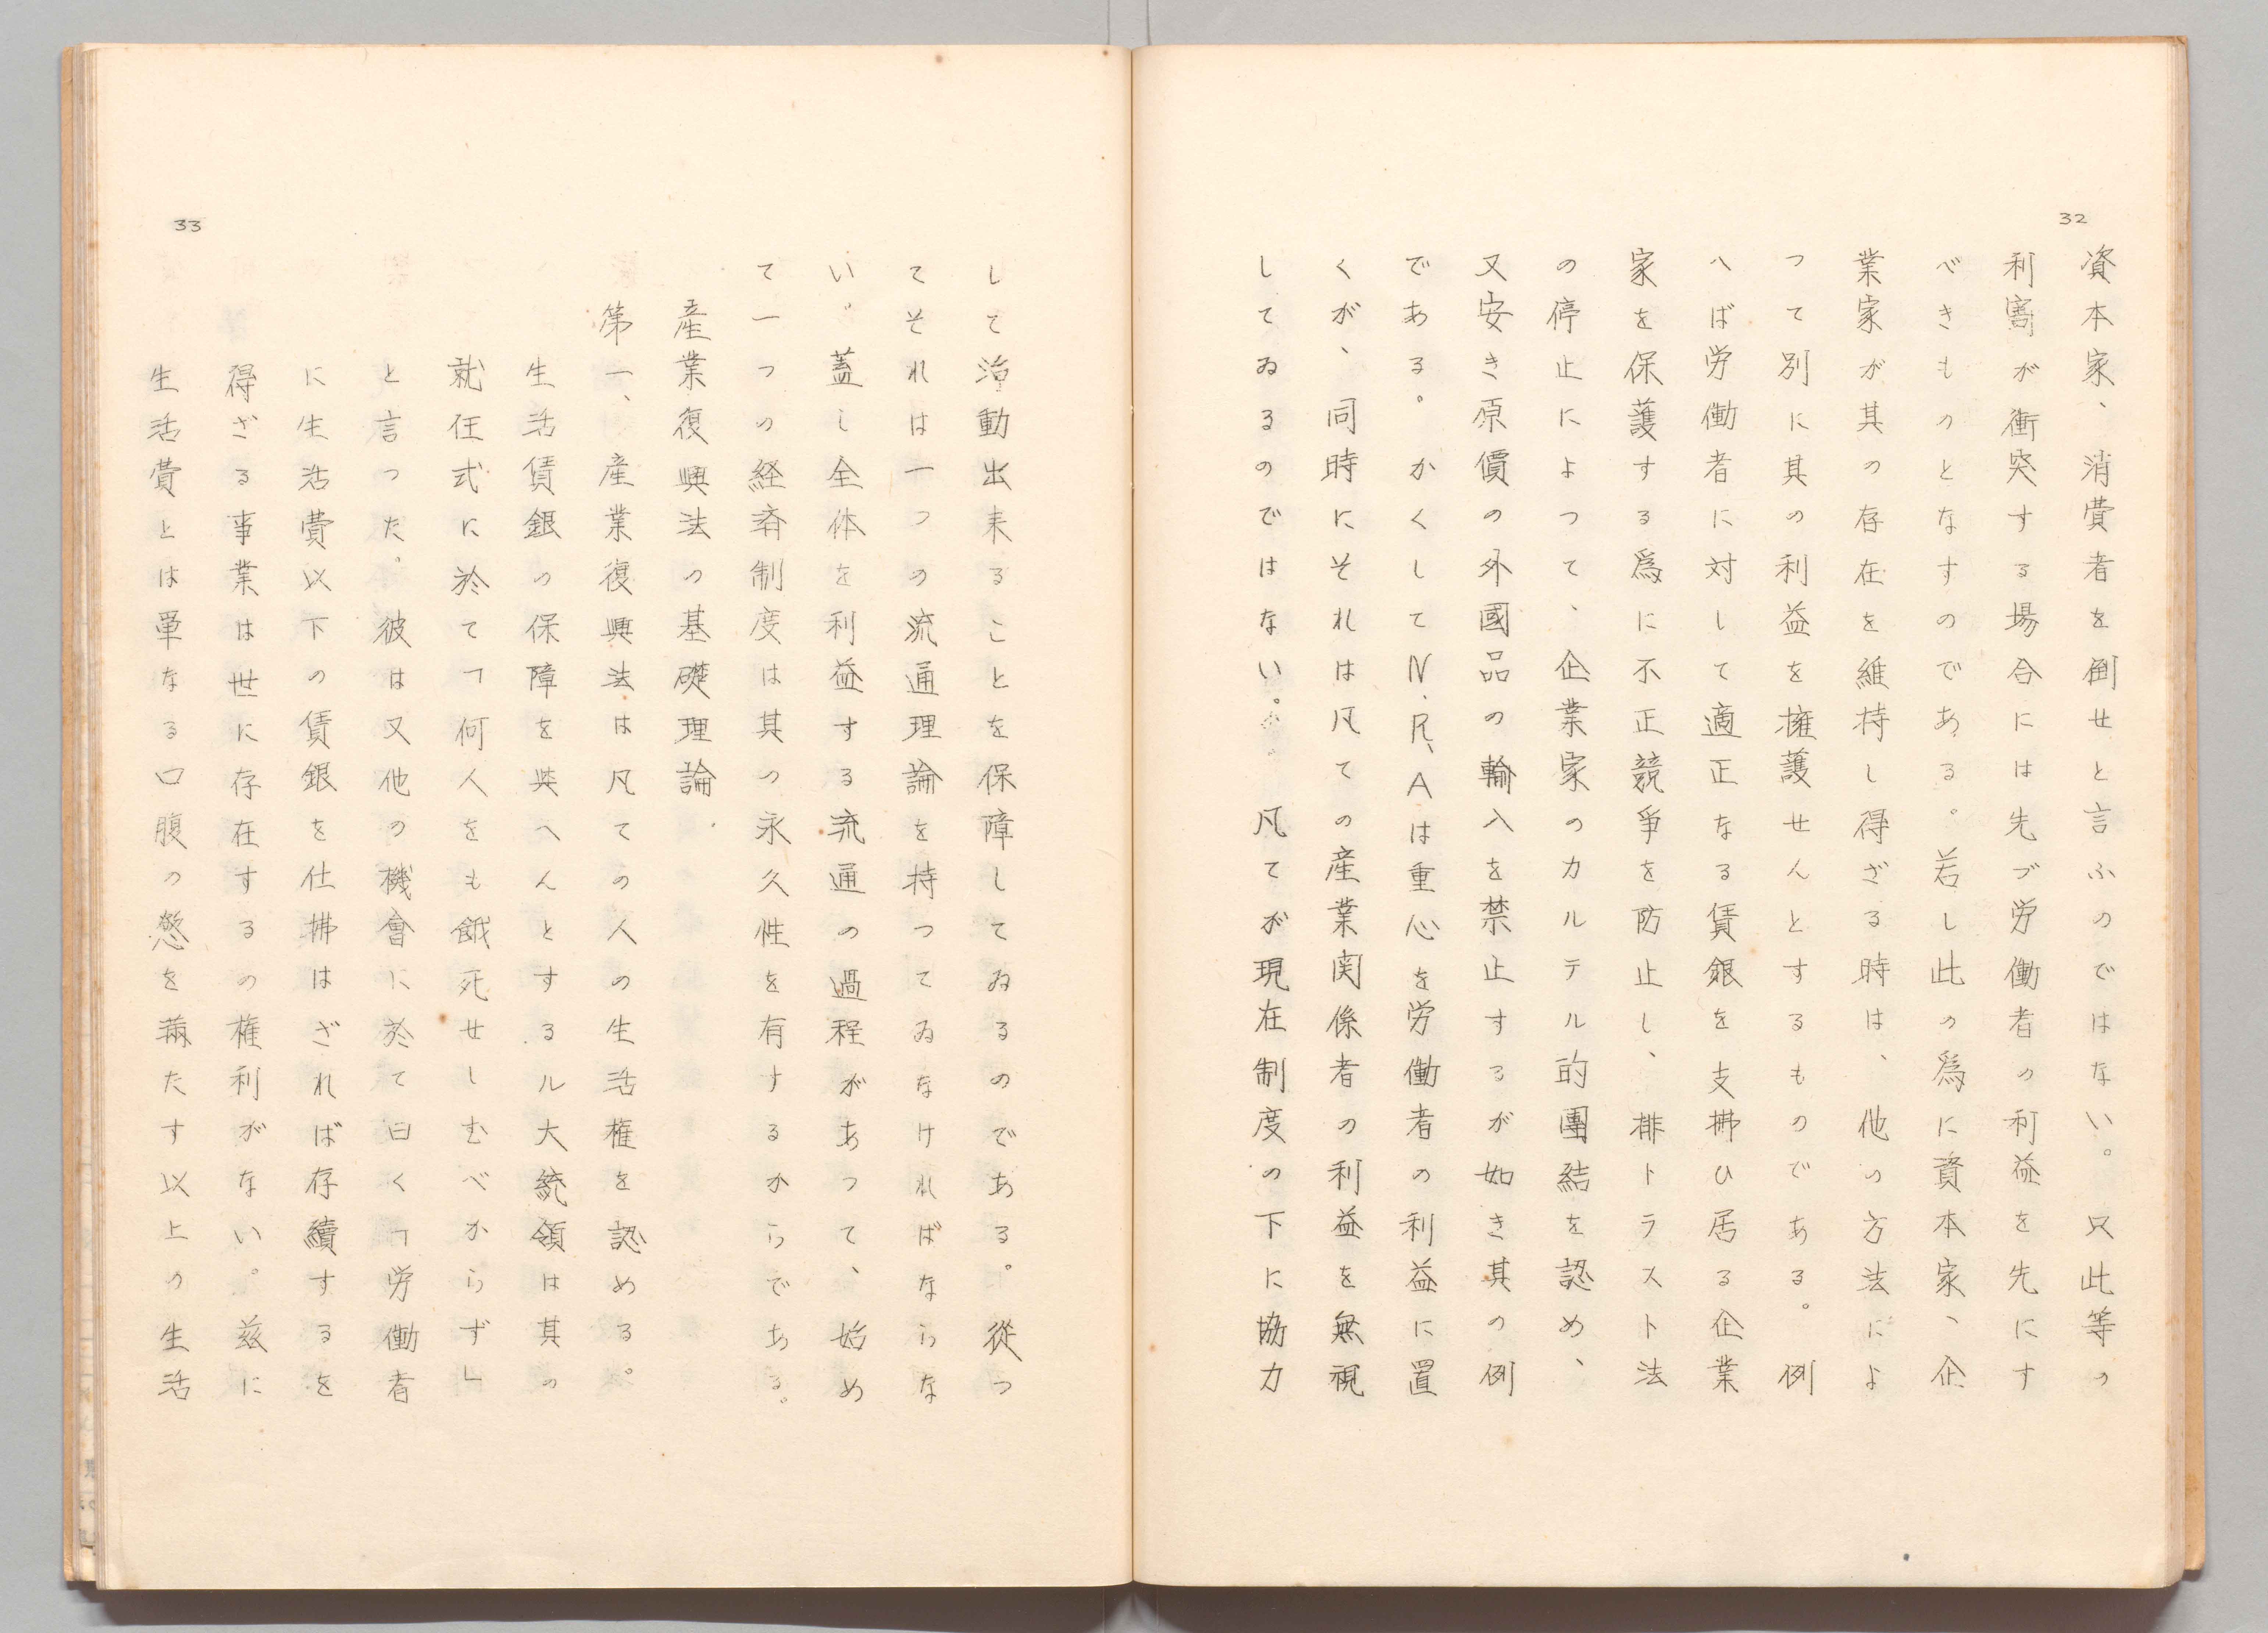 32
資本家、消費者を倒せと言ふのではない。只此等の
利害が衝突する場合には先づ労働者の利益を先にす
べきものとなすのである。若し此の爲に資本家、企
業家が其の存在を維持し得ざる時は、他の方法によ
つて別に其の利益を擁護せんとするものである。例
へば労働者に対して適正なる賃銀を支拂ひ居る企業
家を保護する爲に不正競爭を防止し、排トラスト法
の停止によつて、企業家のカルテル的團結を認め、
又安き原價の外國品の輸入を禁止するが如き其の例
である。かくしてN.R.Aは重心を労働者の利益に置
くが、同時にそれは凡ての産業関係者の利益を無視
してゐるのではない。凡てが現在制度の下に協力
33
して活動出来ることを保障してゐるのである。從つ
てそれは一つの流通理論を持つてゐなければならな
い。蓋し全体を利益する流通の過程があつて、始め
て一つの経済制度は其の永久性を有するからである。
産業復興法の基礎理論.
第一、産業復興法は凡ての人の生活権を認める。
生活賃銀の保障を與へんとするル大統領は其の
就任式に於て「何人をも餓死せしむべからず」
と言つた。彼は又他の機會に於て曰く「労働者
に生活費以下の賃銀を仕拂はざれば存續するを
得ざる事業は世に存在するの権利がない。茲に
生活費とは單なる口腹の慾を滿たす以上の生活